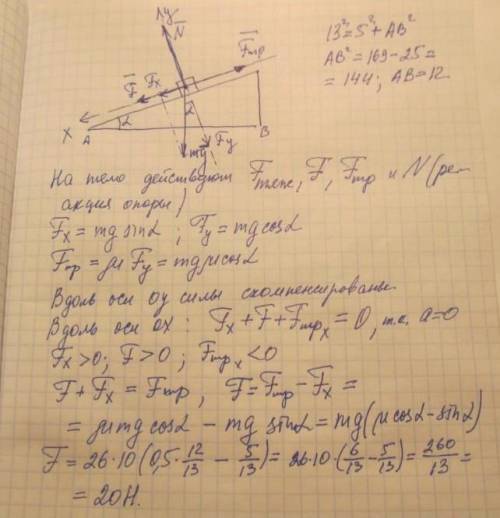 y
N̄
F̄тр
F̄
Fx
X
α
α
A
B
Fy
mḡ
13² = 5² + AB²
AB² = 169 - 25 =
= 144; AB = 12
На тело действуют Fтяж, F̄, Fтр и N (ре-
акция опоры)
Fx = mg sinα ; Fy = mg cosα
Fтр = μ Fy = mgμcosα
Вдоль оси Oy силы скомпенсированы
Вдоль оси OX: Fx + F + Fтрx = 0, т.к. a=0
Fx > 0; F > 0 ; Fтрx < 0
F + Fx = Fтр , F = Fтр - Fx =
= μmg cosα - mg sinα = mg(μcosα - sinα)
F = 26·10(0,5·12/13 - 5/13) = 26·10·(6/13 - 5/13) = 260/13 =
= 20Н.